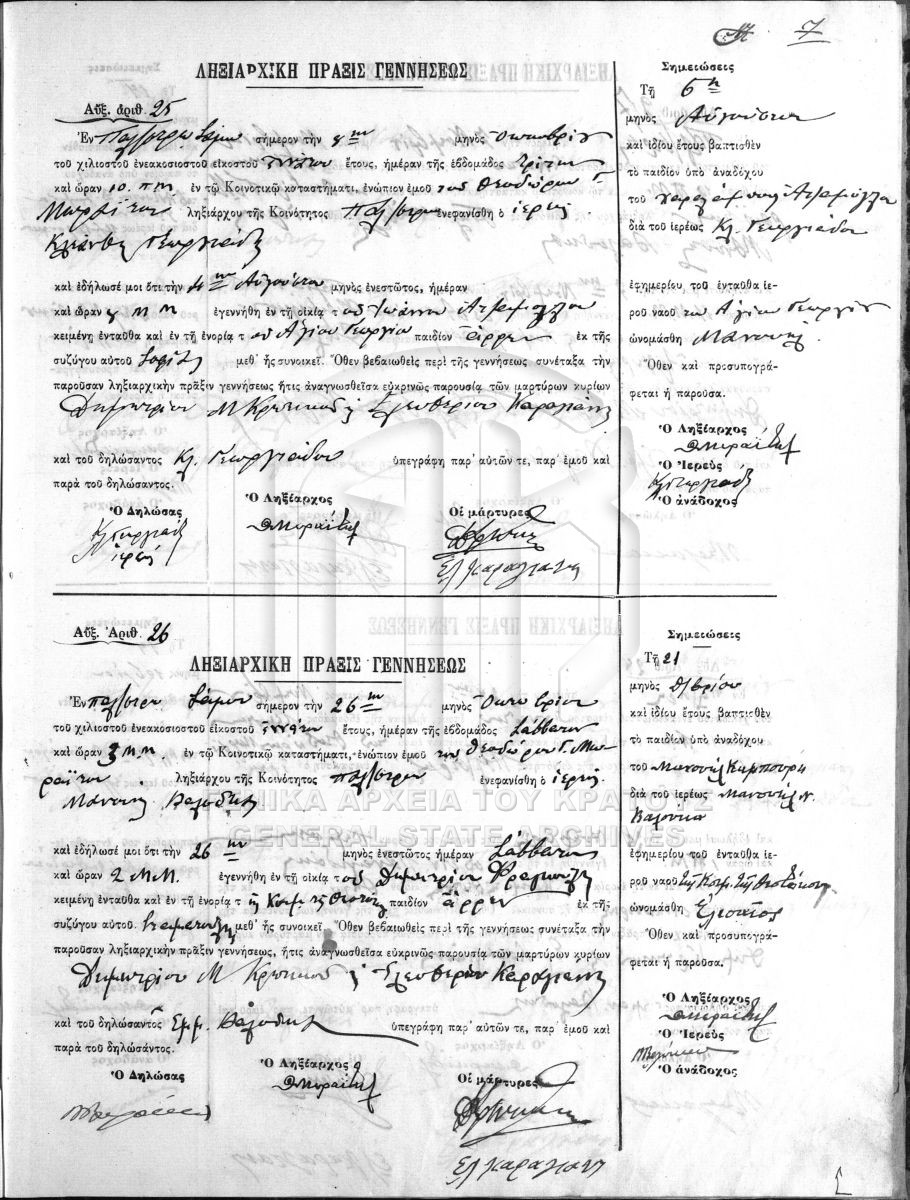 7
ΛΗΞΙΑΡΧΙΚΗ ΠΡΑΞΙΣ ΓΕΝΝΗΣΕΩΣ
Αὔξ. ἀριθ. 25
Ἐν σήμερον τὴν 8ην μηνὸς Ὀκτωβρίου
τοῦ χιλιοστοῦ ἐνεακοσιοστοῦ εἰκοστοῦ ἐνάτου ἔτους, ἡμέραν τῆς ἑβδομάδος Τρίτην
καὶ ὥραν 10. π.μ. ἐν τῷ Κοινοτικῷ καταστήματι, ἐνώπιον ἐμοῦ τοῦ Θεοδώρου Γ.
Μωραΐτου ληξιάρχου τῆς Κοινότητος ἐνεφανίσθη ὁ ἱερεὺς
Κλεάνθης Γεωργιάδης
καὶ ἐδήλωσέ μοι ὅτι τὴν 4ην Αὐγούστου μηνὸς ἐνεστῶτος, ἡμέραν
καὶ ὥραν μ.μ. ἐγεννήθη ἐν τῇ οἰκίᾳ τοῦ Ἰωάννου
κειμένῃ ἐνταῦθα καὶ ἐν τῇ ἐνορίᾳ τοῦ Ἁγίου Γεωργίου παιδίον ἄρρεν ἐκ τῆς
συζύγου αὐτοῦ Σοφίας μεθ᾽ ἧς συνοικεῖ. Ὅθεν βεβαιωθεὶς περὶ τῆς γεννήσεως συνέταξα τὴν
παροῦσαν ληξιαρχικὴν πρᾶξιν γεννήσεως ἥτις ἀναγνωσθεῖσα εὐκρινῶς παρουσίᾳ τῶν μαρτύρων κυρίων
Δημητρίου Μ Κρητικοῦ & Ἐλευθερίου Καραγιάννη
καὶ τοῦ δηλώσαντος Κλ. Γεωργιάδου ὑπεγράφη παρ᾽ αὐτῶν τε, παρ᾽ ἐμοῦ καὶ
παρὰ τοῦ δηλώσαντος.
Ὁ Δηλώσας
Ὁ Ληξίαρχος
Οἱ μάρτυρες
Κλ Γεωργιάδης
ἱερεύς
Θ Μωραΐτης
Ελ Καραγιάννης
Σημειώσεις
Τῇ 6η
μηνὸς Αὐγούστου
καὶ ἰδίου ἔτους βαπτισθὲν
τὸ παιδίον ὑπὸ ἀναδόχου
τοῦ
διὰ τοῦ ἱερέως Κλ. Γεωργιάδου
ἐφημερίου τοῦ ἐνταῦθα ἱε-
ροῦ ναοῦ τοῦ Ἁγίου Γεωργίου
ὠνομάσθη Μανουὴλ
Ὅθεν καὶ προσυπογρά-
φεται ἡ παροῦσα.
Ὁ Ληξίαρχος
Θ Μωραΐτης
Ὁ Ἱερεὺς
Κλ Γεωργιάδης
Ὁ ἀνάδοχος
Αὔξ. Ἀριθ. 26
ΛΗΞΙΑΡΧΙΚΗ ΠΡΑΞΙΣ ΓΕΝΝΗΣΕΩΣ
Ἐν Σάμου σήμερον τὴν 26ην μηνὸς Ὀκτωβρίου
τοῦ χιλιοστοῦ ἐνεακοσιοστοῦ εἰκοστοῦ ἐνάτου ἔτους, ἡμέραν τῆς ἑβδομάδος Σάββατον
καὶ ὥραν 3 μ.μ. ἐν τῷ Κοινοτικῷ καταστήματι, ἐνώπιον ἐμοῦ τοῦ Θεοδώρου Γ. Μω
ραΐτου ληξιάρχου τῆς Κοινότητος ἐνεφανίσθη ὁ ἱερεὺς
καὶ ἐδήλωσέ μοι ὅτι τὴν 26ην μηνὸς ἐνεστῶτος ἡμέραν Σάββατον
καὶ ὥραν 2 Μ.Μ. ἐγεννήθη ἐν τῇ οἰκίᾳ τοῦ Δημητρίου
κειμένῃ ἐνταῦθα καὶ ἐν τῇ ἐνορίᾳ τῆς Κοιμ. τῆς Θεοτόκου παιδίον ἄρρεν ἐκ τῆς
συζύγου αὐτοῦ μεθ᾽ ἧς συνοικεῖ. Ὅθεν βεβαιωθεὶς περὶ τῆς γεννήσεως συνέταξα τὴν
παροῦσαν ληξιαρχικὴν πρᾶξιν γεννήσεως, ἥτις ἀναγνωσθεῖσα εὐκρινῶς παρουσίᾳ τῶν μαρτύρων κυρίων
Δημητρίου Μ Κρητικοῦ & Ἐλευθερίου Καραγιάννη
καὶ τοῦ δηλώσαντος Ἐμμ. ὑπεγράφη παρ᾽ αὐτῶν τε, παρ᾽ ἐμοῦ καὶ
παρὰ τοῦ δηλώσαντος.
Ὁ Δηλώσας
Ὁ Ληξίαρχος
Οἱ μάρτυρες
Θ Μωραΐτης
Ελ Καραγιάννης
Σημειώσεις
Τῇ 21
μηνὸς
καὶ ἰδίου ἔτους βαπτισθὲν
τὸ παιδίον ὑπὸ ἀναδόχου
τοῦ Μανουὴλ Καμπούρη
διὰ τοῦ ἱερέως Μανουὴλ
ἐφημερίου τοῦ ἐνταῦθα ἱε-
ροῦ ναοῦ τῆς Κοιμ. τῆς Θεοτόκου
ὠνομάσθη
Ὅθεν καὶ προσυπογρά-
φεται ἡ παροῦσα.
Ὁ Ληξίαρχος
Θ Μωραΐτης
Ὁ Ἱερεὺς
Ὁ ἀνάδοχος
ΓΕΝΙΚΑ ΑΡΧΕΙΑ ΤΟΥ ΚΡΑΤΟΥΣ
GENERAL STATE ARCHIVES